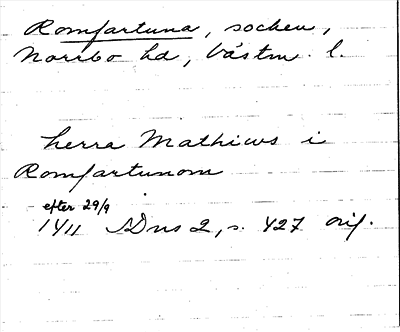 Romfartuna, socken,
Norrbo hd, Västm. l.
herra Mathius i
Romfartunom
efter 29/9
1411 SDns 2, s. 427 orig.